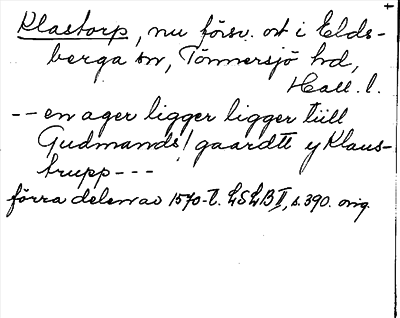 Klastorp, nu försv. ort i Elds-
berga sn, Tönnersjö hd,
Hall. l.
-- en ager ligger ligger till
Gudmands/gaardtt y Klaus-
trupp ---
förra delen av 1570-t. LSLB II, s. 390. orig.